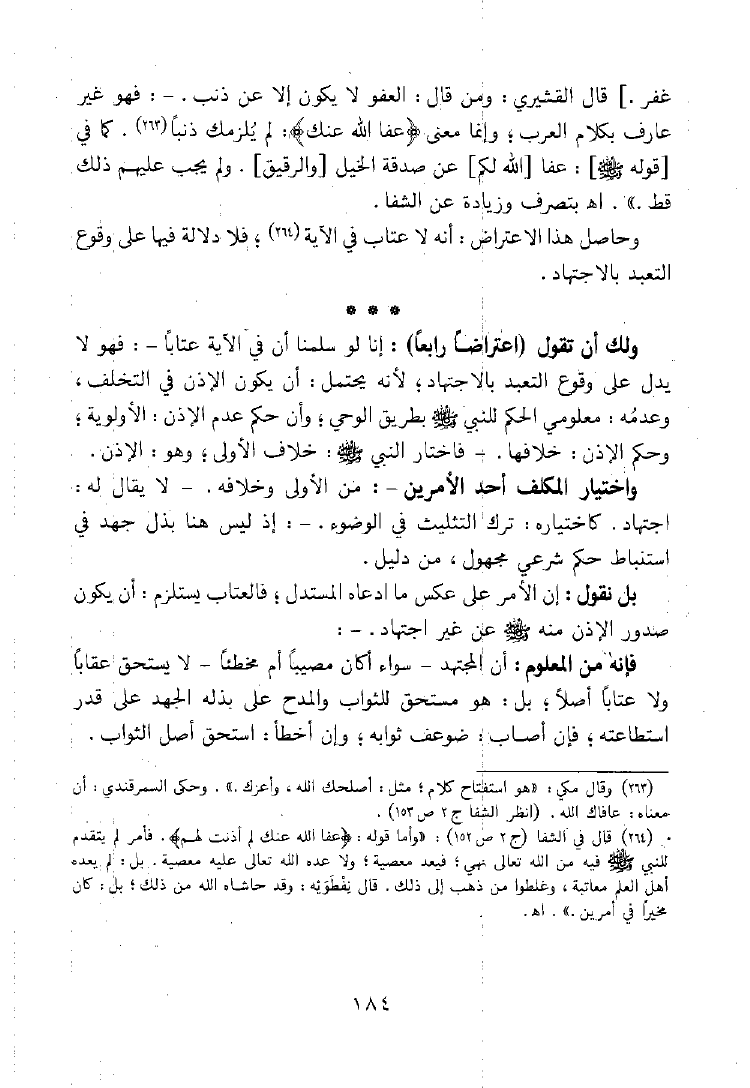 غفر .] قال القشيري : ومن قال : العفو لا يكون إلا عن ذنب . – : فهو غير
عارف بكلام العرب ؛ وإنما معنى ﴿عفا الله عنك﴾: لم يُلزمك ذنباً (٢٦٣) . كما في
[قوله ﷺ] : عفا [الله لكم] عن صدقة الخيل [والرقيق] . ولم يجب عليهم ذلك
قط .» . اهـ بتصرف وزيادة عن الشفا .
وحاصل هذا الاعتراض : أنه لا عتاب في الآية (٢٦٤) ؛ فلا دلالة فيها على وقوع
التعبد بالاجتهاد .
* * *
ولك أن تقول (اعتراضاً رابعاً) : إنا لو سلمنا أن في الآية عتاباً – : فهو لا
يدل على وقوع التعبد بالاجتهاد؛ لأنه يحتمل : أن يكون الإذن في التخلف ،
وعدمُه : معلومي الحكم للنبي ﷺ بطريق الوحي ؛ وأن حكم عدم الإذن : الأولوية ؛
وحكم الإذن : خلافها . – فاختار النبي ﷺ : خلاف الأولى ؛ وهو : الإذن .
واختيار المكلف أحد الأمرين – : من الأولى وخلافه . – لا يقال له :
اجتهاد . كاختياره : ترك التثليث في الوضوء . – : إذ ليس هنا بذل جهد في
استنباط حكم شرعي مجهول ، من دليل .
بل نقول : إن الأمر على عكس ما ادعاه المستدل ؛ فالعتاب يستلزم : أن يكون
صدور الإذن منه ﷺ عن غير اجتهاد . – :
فإنه من المعلوم : أن المجتهد – سواء أكان مصيباً أم مخطئاً – لا يستحق عقاباً
ولا عتاباً أصلاً ؛ بل : هو مستحق للثواب والمدح على بذله الجهد على قدر
استطاعته ؛ فإن أصاب : ضوعف ثوابه ؛ وإن أخطأ : استحق أصل الثواب .
(٢٦٣) وقال مكي : «هو استفتاح كلام ؛ مثل : أصلحك الله ، وأعزك .» . وحكى السمرقندي : أن
معناه : عافاك الله . (انظر الشفا ج ٢ ص ١٥٣) .
(٢٦٤) قال في الشفا (ج ٢ ص ١٥٢) : «وأما قوله : ﴿عفا الله عنك لم أذنت لهم﴾ . فأمر لم يتقدم
للنبي ﷺ فيه من الله تعالى نهي ؛ فيعد معصية ؛ ولا عده الله تعالى عليه معصية . بل : لم يعده
أهل العلم معاتبة ، وغلطوا من ذهب إلى ذلك . قال نِفْطَوَيْه : وقد حاشاه الله من ذلك ؛ بل : كان
مخيراً في أمرين .» . اهـ .
١٨٤